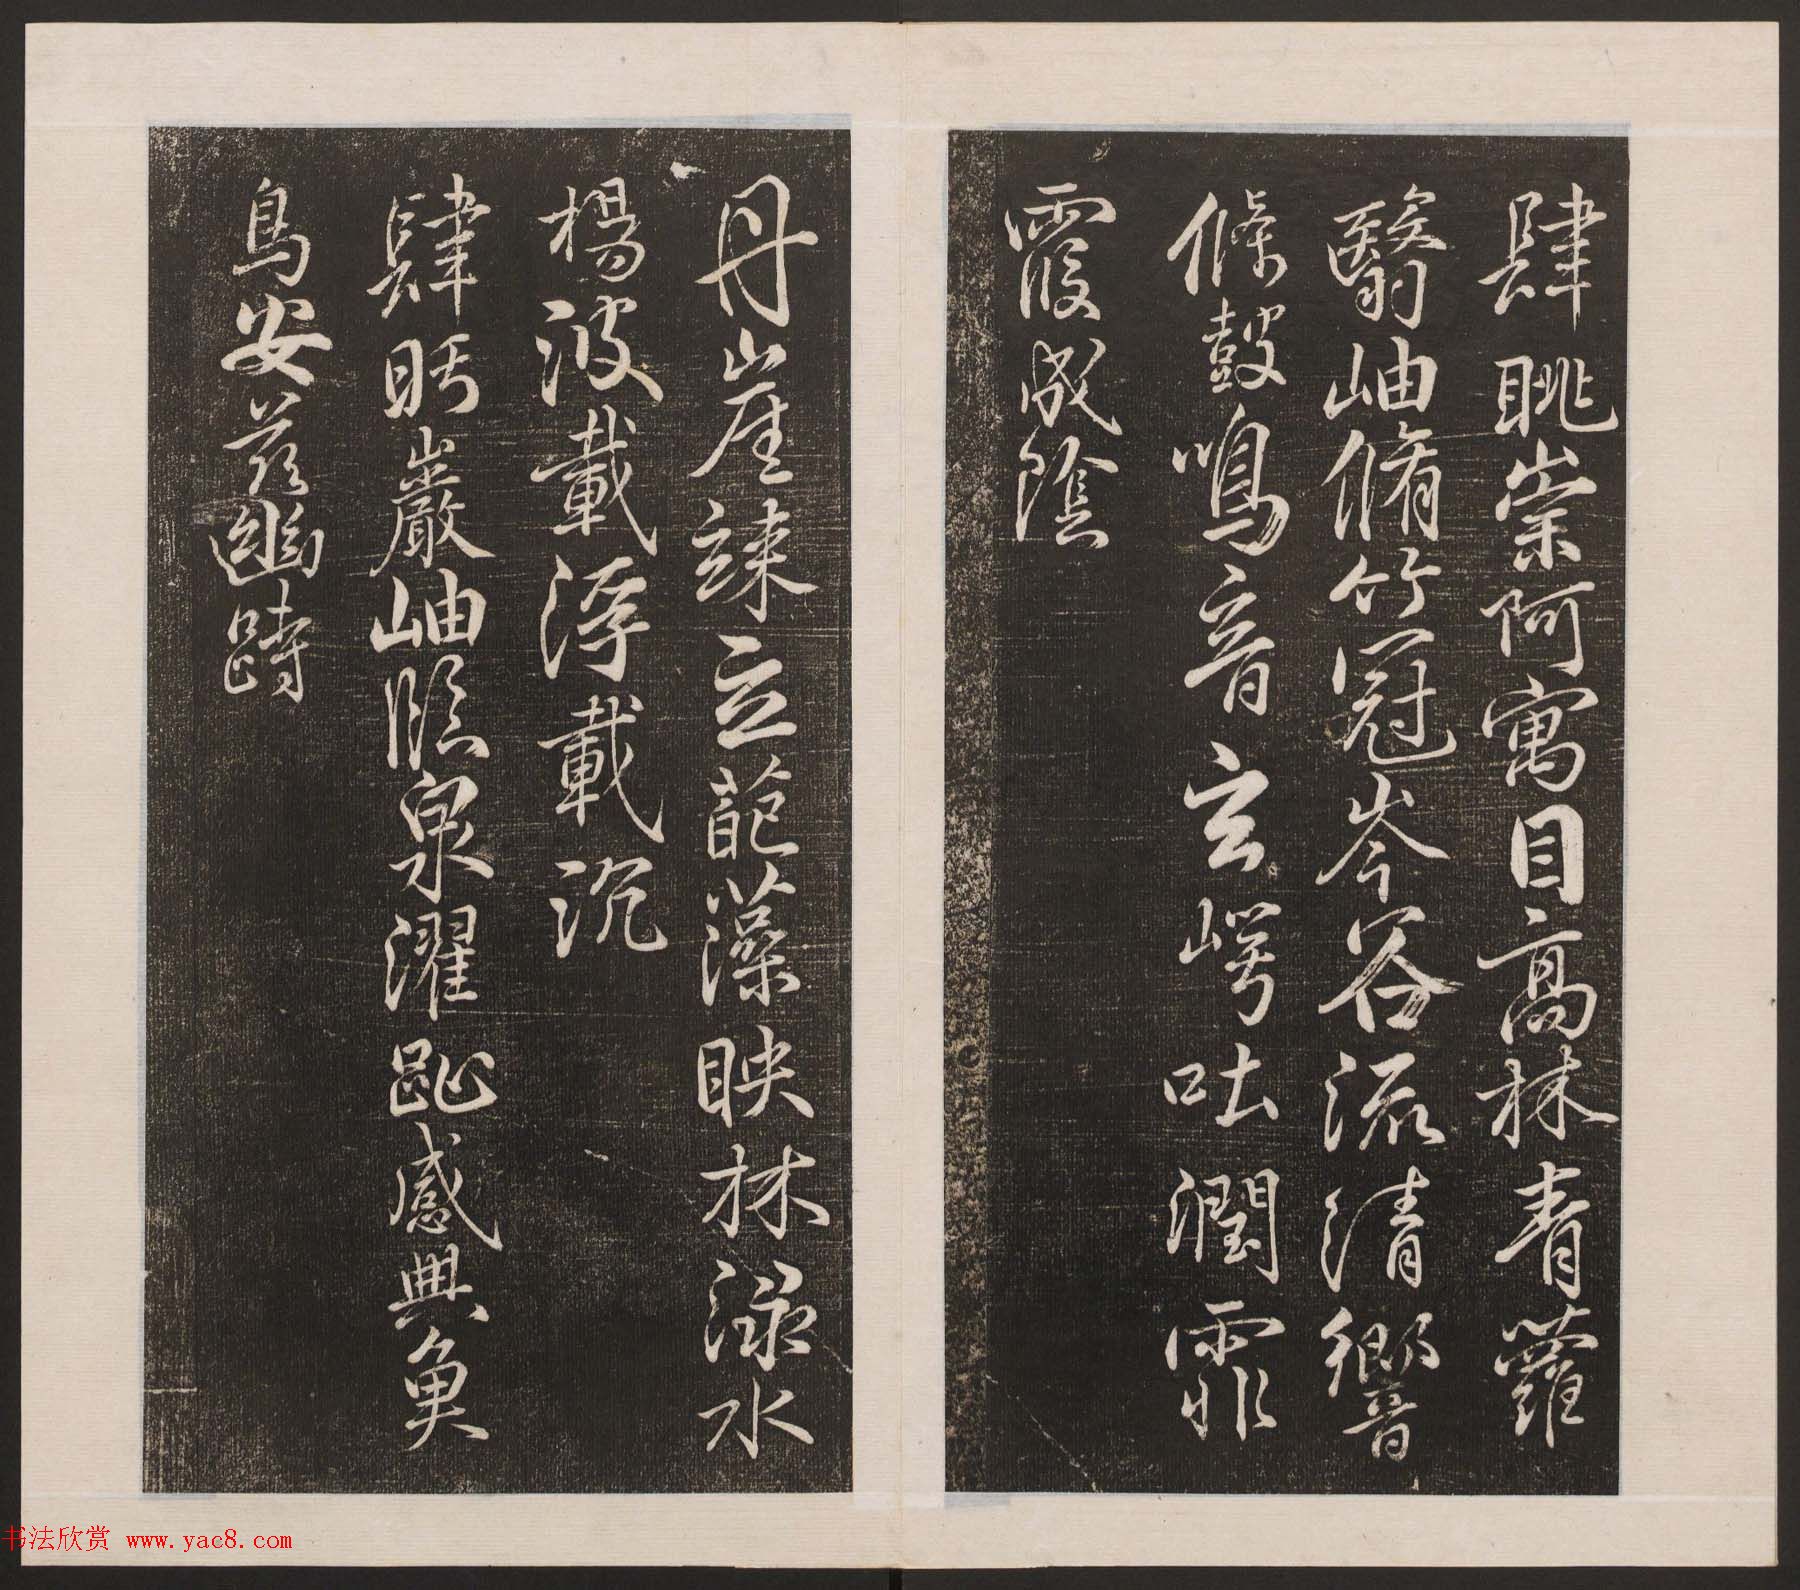 肆眺崇阿寓目高林青蘿
翳岫脩竹冠岑谷流清響
條鼓鳴音玄崿吐潤霏
霞成陰
丹崖竦立葩藻映林淥水
楊波載浮載沉
肆眄巖岫臨泉濯趾感興魚
鳥安茲幽跱
书法欣赏 www.yac8.com